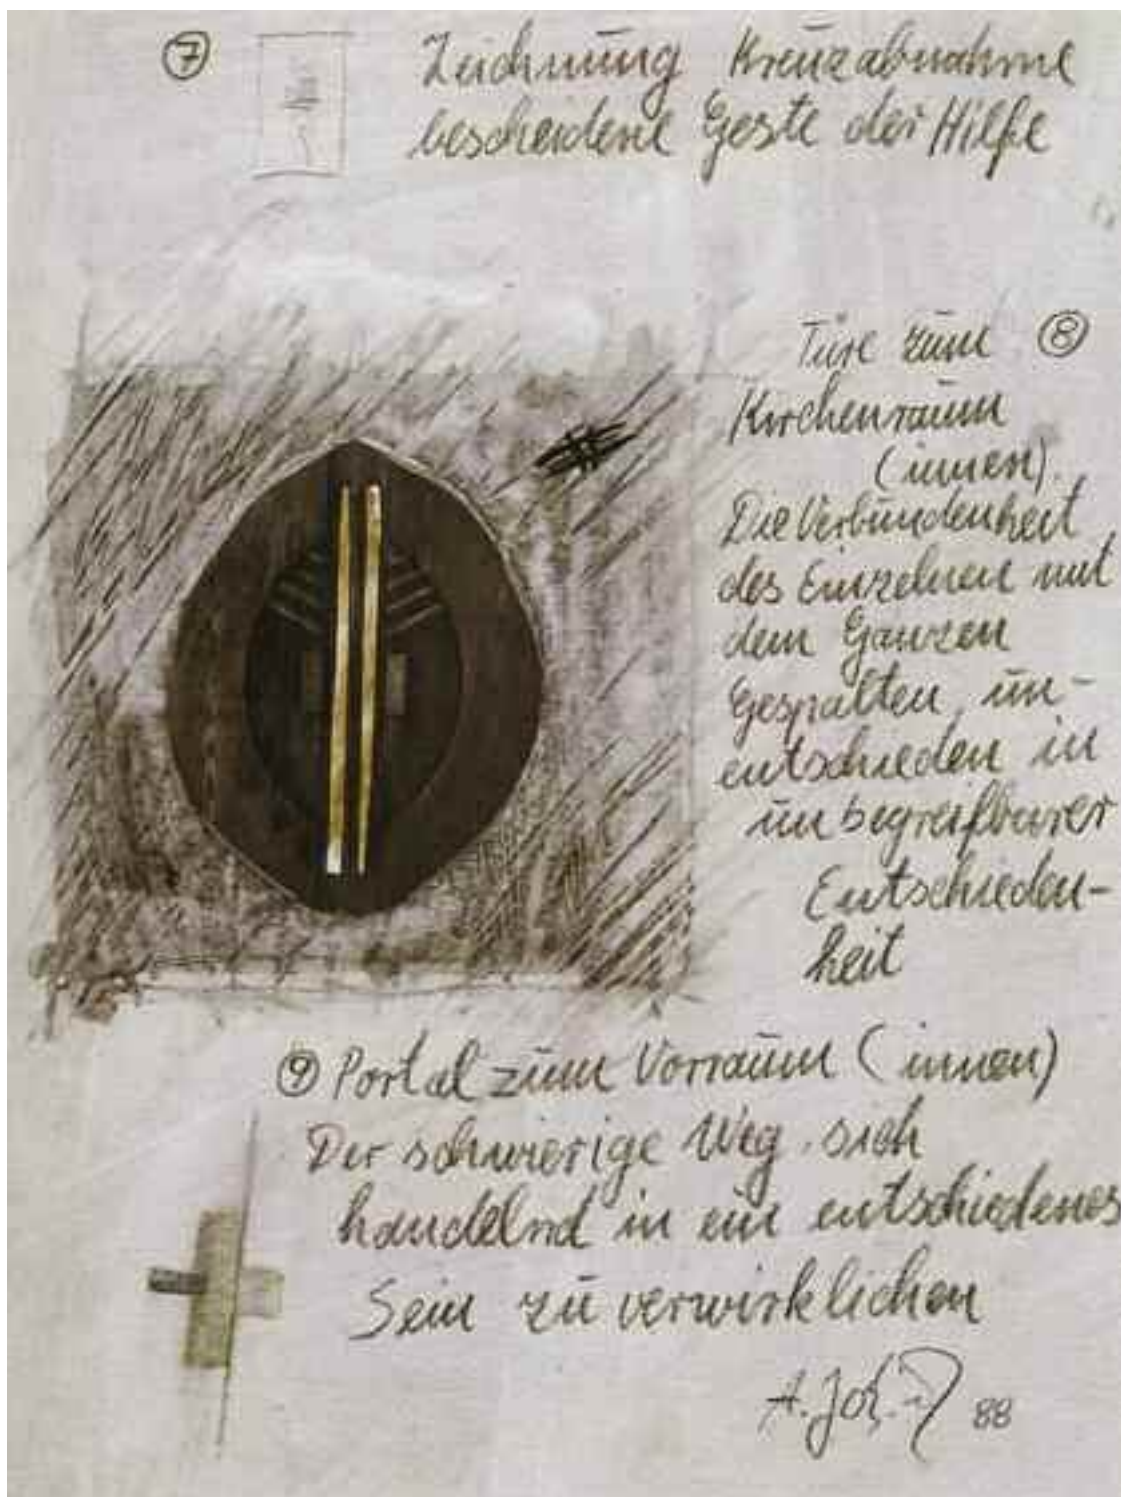 ⑦ Zeichnung Kreuzabnahme
bescheidene Geste der Hilfe
Türe zum ⑧
Kirchenraum
(innen).
Die Verbundenheit
des Einzelnen mit
dem Ganzen
Gespalten, un-
entschieden in
unbegreifbarer
Entschieden-
heit
⑨ Portal zum Vorraum (innen)
Der schwierige Weg, sich
handelnd in ein entschiedenes
Sein zu verwirklichen
A. 88